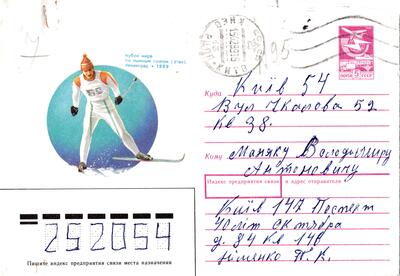 Кубок мира
по лыжным гонкам (этап)
Ленинград • 1989
55
95
ПОЧТА СССР
5
Куда Київ 54
Вул Чкалова 52
кв 38.
Кому Маняку Володимиру
Антоновичу
Индекс предприятия связи и адрес отправителя
Київ 147 Постерт
40 літ Октября
д. 34 кв 146
П.К.
252054
Пишите индекс предприятия связи места назначения